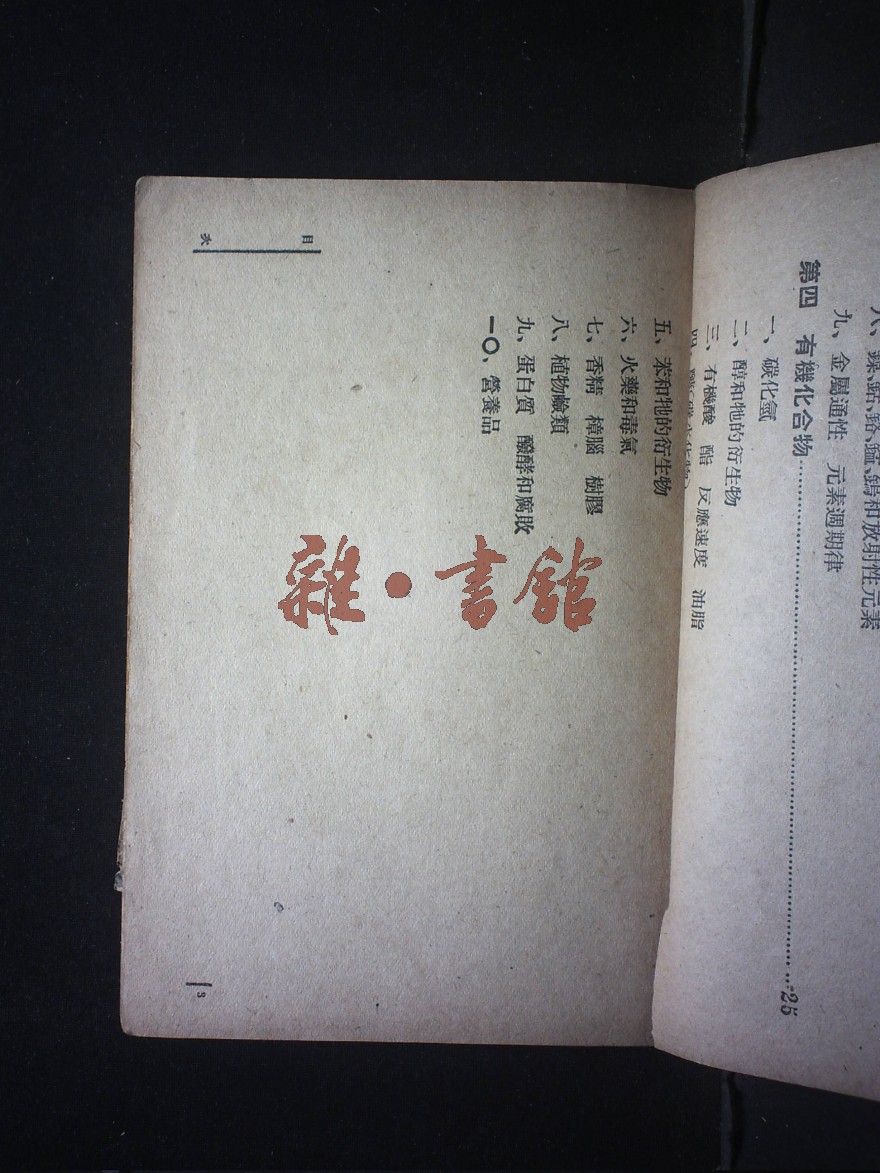 八、鎳、鈷、鉻、錳、鎢和放射性元素
九、金屬通性　元素週期律
第四　有機化合物……25
一、碳化氫
二、醇和牠的衍生物
三、有機酸　酯　反應速度　油脂
四、醣(碳水化物)
五、苯和牠的衍生物
六、火藥和毒氣
七、香精　樟腦　樹膠
八、植物鹼類
九、蛋白質　醱酵和腐敗
一〇、營養品
目次
3
雜·書館